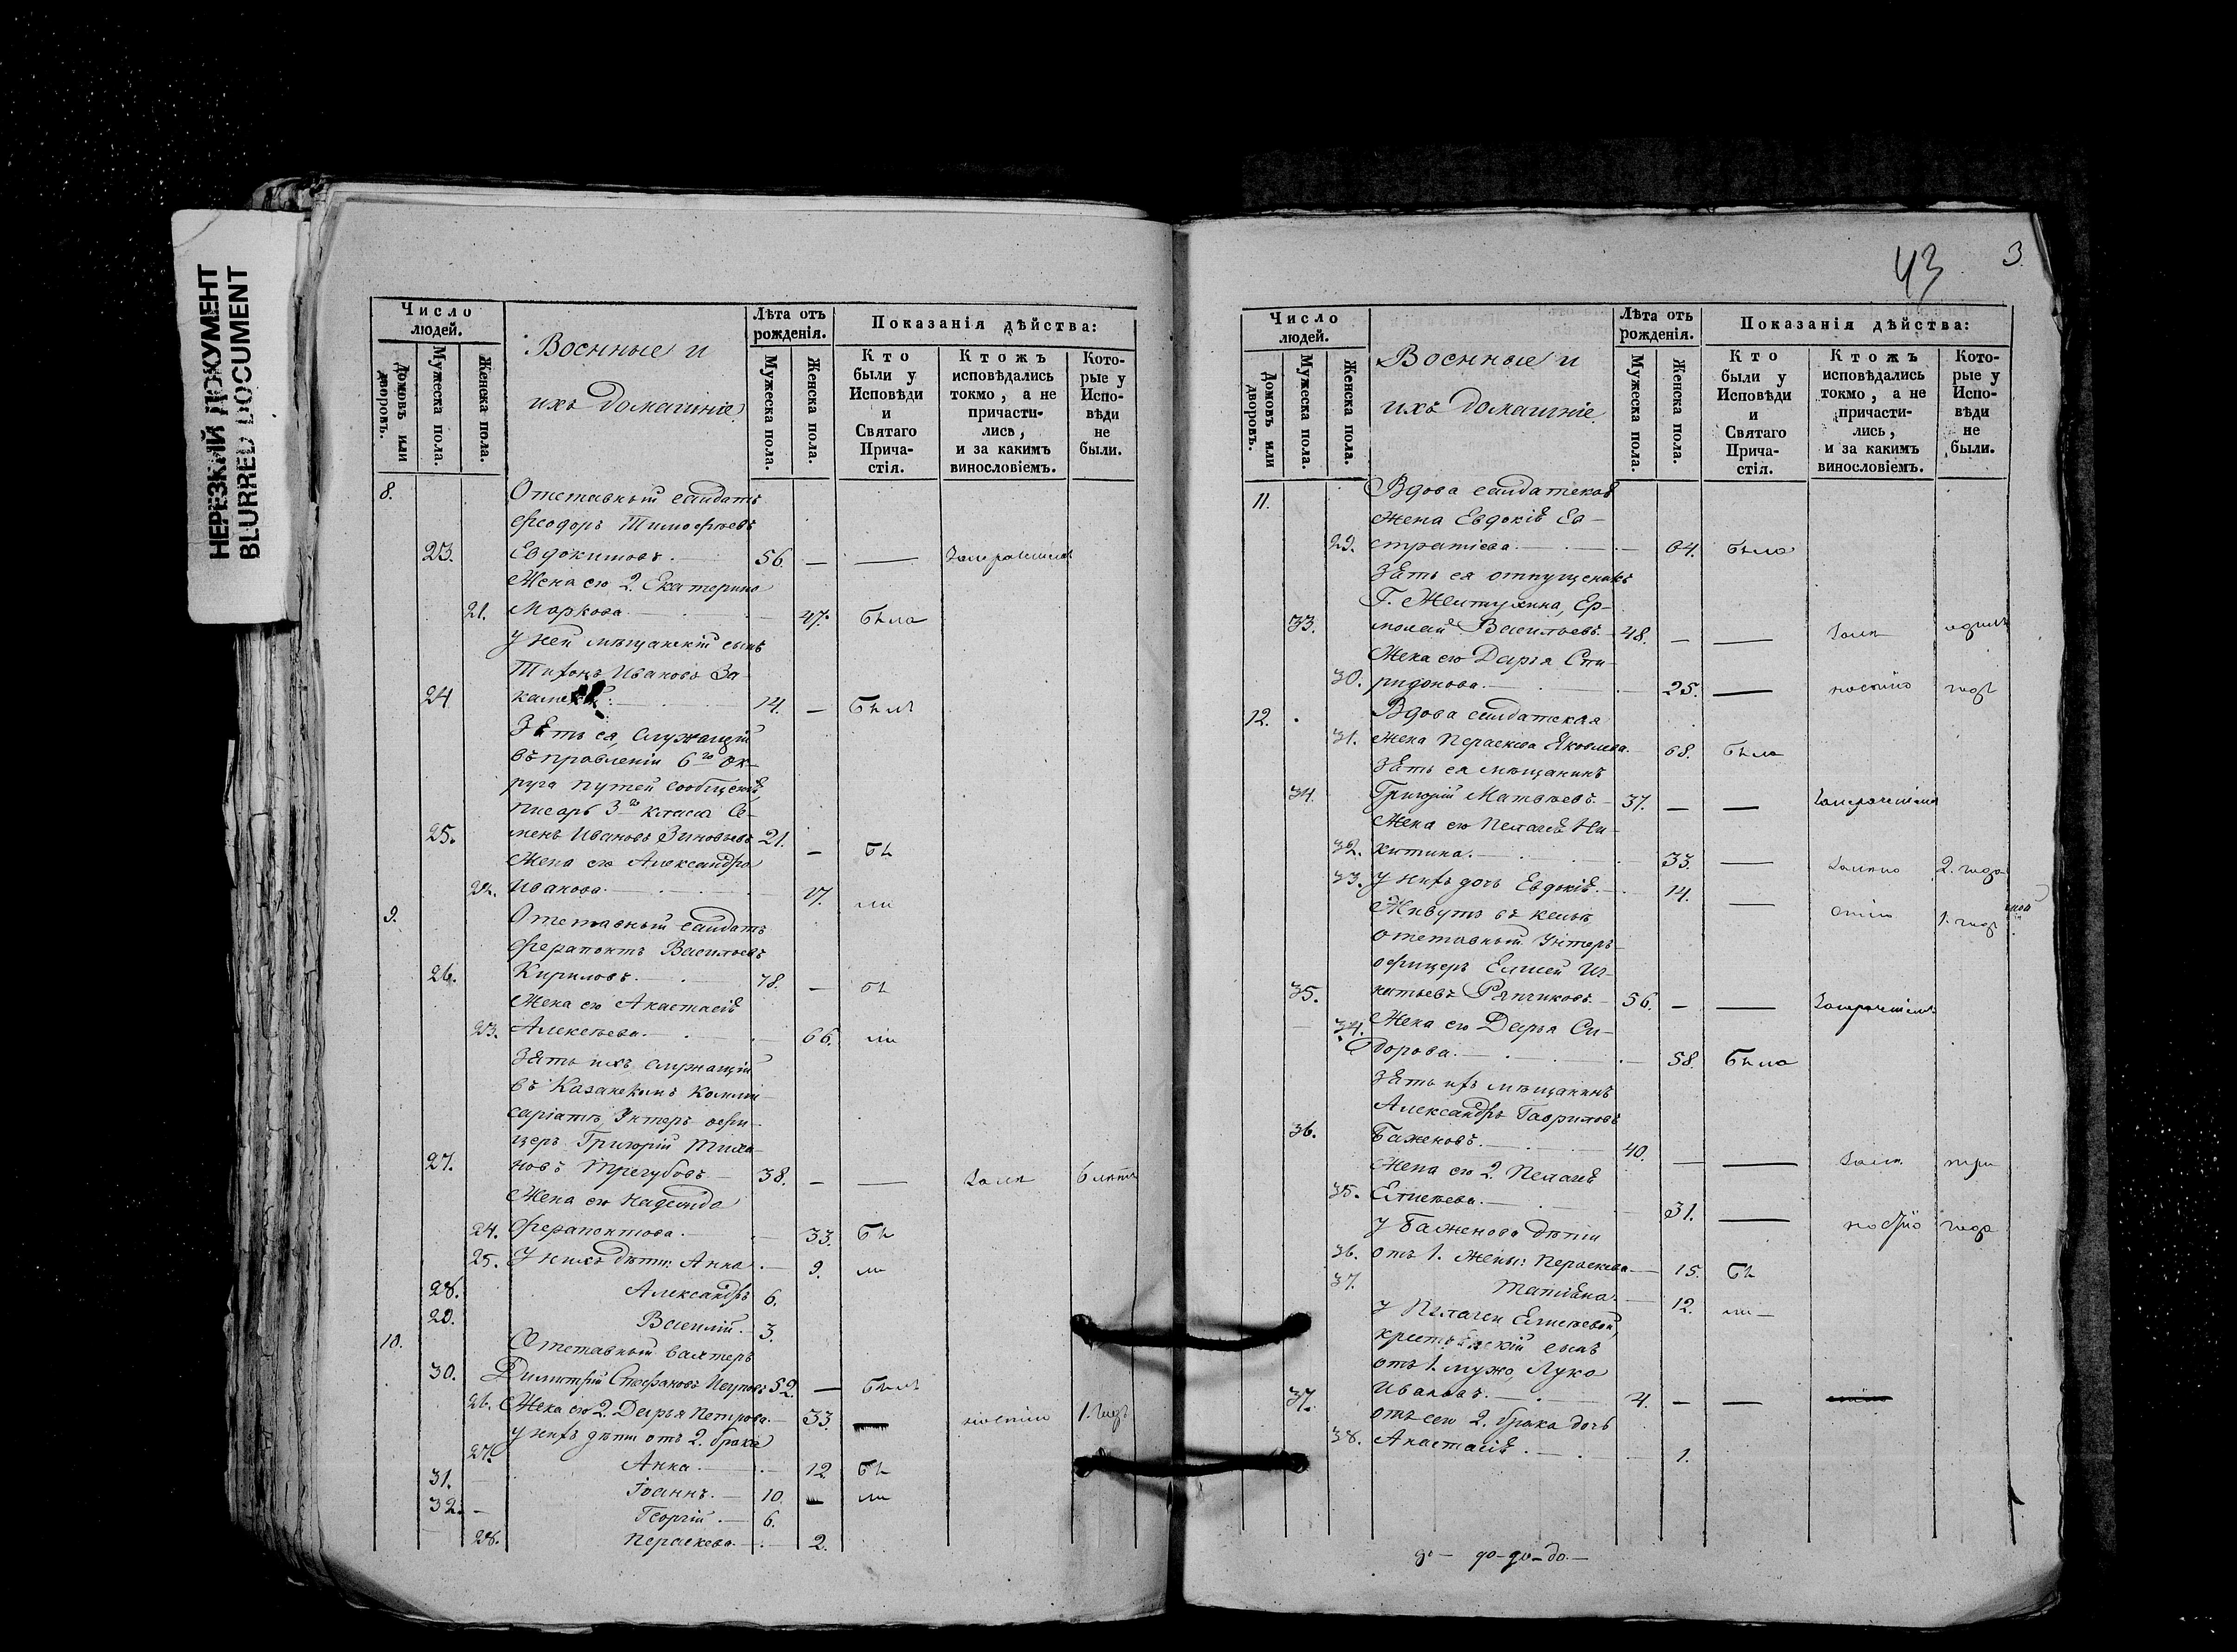 НЕРЕЗКИЙ ДОКУМЕНТ
BLURRED DOCUMENT
Число людей.
Домовъ или дворовъ.
Мужеска пола.
Женска пола.
Военные и
ихъ домашніе
Лѣта отъ рожденія.
Мужеска пола.
Женска пола.
Показанія дѣйства:
Кто были у Исповѣди и Святаго Прича-стія.
Ктожъ исповѣдались токмо, а не причасти-лись, и за какимъ винословіемъ.
Кото-рые у Испо-вѣди не были.
8. Отставный солдатъ
Феодоръ Тимофѣевъ
23. Евдокимовъ. 56. — —
Жена его 2. Екатерина
21. Маркова 47. была
У ней мѣщанскій сынъ
Тихонъ Ивановъ За-
24 14. — былъ
Зять ея, служащій
въ правленіи 6го Ок-
руга путей сообщенія,
писарь 3го класса Се-
25. менъ Ивановъ Зиновьевъ 21. — бы
Жена его Александра
22. Иванова 17. ли
9. Отставный солдатъ
Ферапонтъ Васильевъ
26. Кириловъ. 78. — бы
Жена его Анастасія
23. Алексѣева. 66. ли
Зять ихъ служащій
въ Казанскомъ Комми-
саріатѣ, Унтеръ офи-
церъ Григорій Тиха-
27. новъ Трегубовъ 38. — — 6 лѣтъ
Жена его Надежда
24. Ферапонтова. 33. бы
25. У нихъ дѣти: Анна 9. ли
28. Александръ 6.
29. Василій. 3.
10. Отставный вахтеръ
30. Димитрій Стефановъ 52. — былъ
26. Жена его 2. Дарья Петрова. 33. 1. годъ
у нихъ дѣти отъ 2. брака
27. Анна 12 бы
31. Іоаннъ. 10. ли
32. Георгій. 6.
28. Параскева. 2.
43 3.
Число людей.
Домовъ или дворовъ.
Мужеска пола.
Женска пола.
Военные и
ихъ домашніе
Лѣта отъ рожденія.
Мужеска пола.
Женска пола.
Показанія дѣйства:
Кто были у Исповѣди и Святаго Прича-стія.
Ктожъ исповѣдались токмо, а не причасти-лись, и за какимъ винословіемъ.
Кото-рые у Испо-вѣди не были.
11. Вдова солдатская
жена Евдокія Ев-
29. стратіева. 64. была
Зять ея отпущеникъ
Г. Желтухина, Ер-
33. молай Васильевъ. 48. — — одинъ
Жена его Дарья Спи-
30. ридонова. 25. — годъ
12. Вдова солдатская
31. жена Параскева Яковлева. 68. была
Зять ея мѣщанинъ
34. Григорій Матвѣевъ. 37. — —
Жена его Пелагея Ни-
32. китина. 33. — 2. года
33. У нихъ дочь Евдокія. 14. — 1. годъ
Живутъ въ кельѣ
отставный Унтеръ
офицеръ Елисей Иг-
35. натьевъ Ряпчиковъ. 56. — —
34. Жена его Дарья Си-
дорова. 58. была
Зять ихъ мѣщанинъ
Александръ Гавриловъ
36. Баженовъ. 40. — — три
Жена его 2. Пелагея
35. Елисѣева. 31. — года
У Баженова дѣти
36. отъ 1. жены: Параскева 15. бы
37. Татіана. 12. ли
У Пелагеи Елисѣевой,
крестьянскій сынъ
отъ 1. мужа, Лука
37. Ивановъ. 4. — —
отъ сего 2. брака дочь
38. Анастасія. 1.